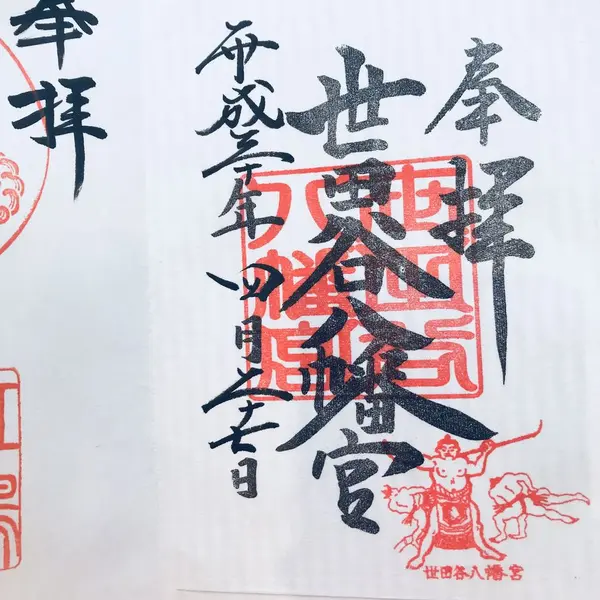 奉拝
世田谷八幡宮
平成三十年四月二十七日
世田谷
八幡宮
世田谷八幡宮
奉拝